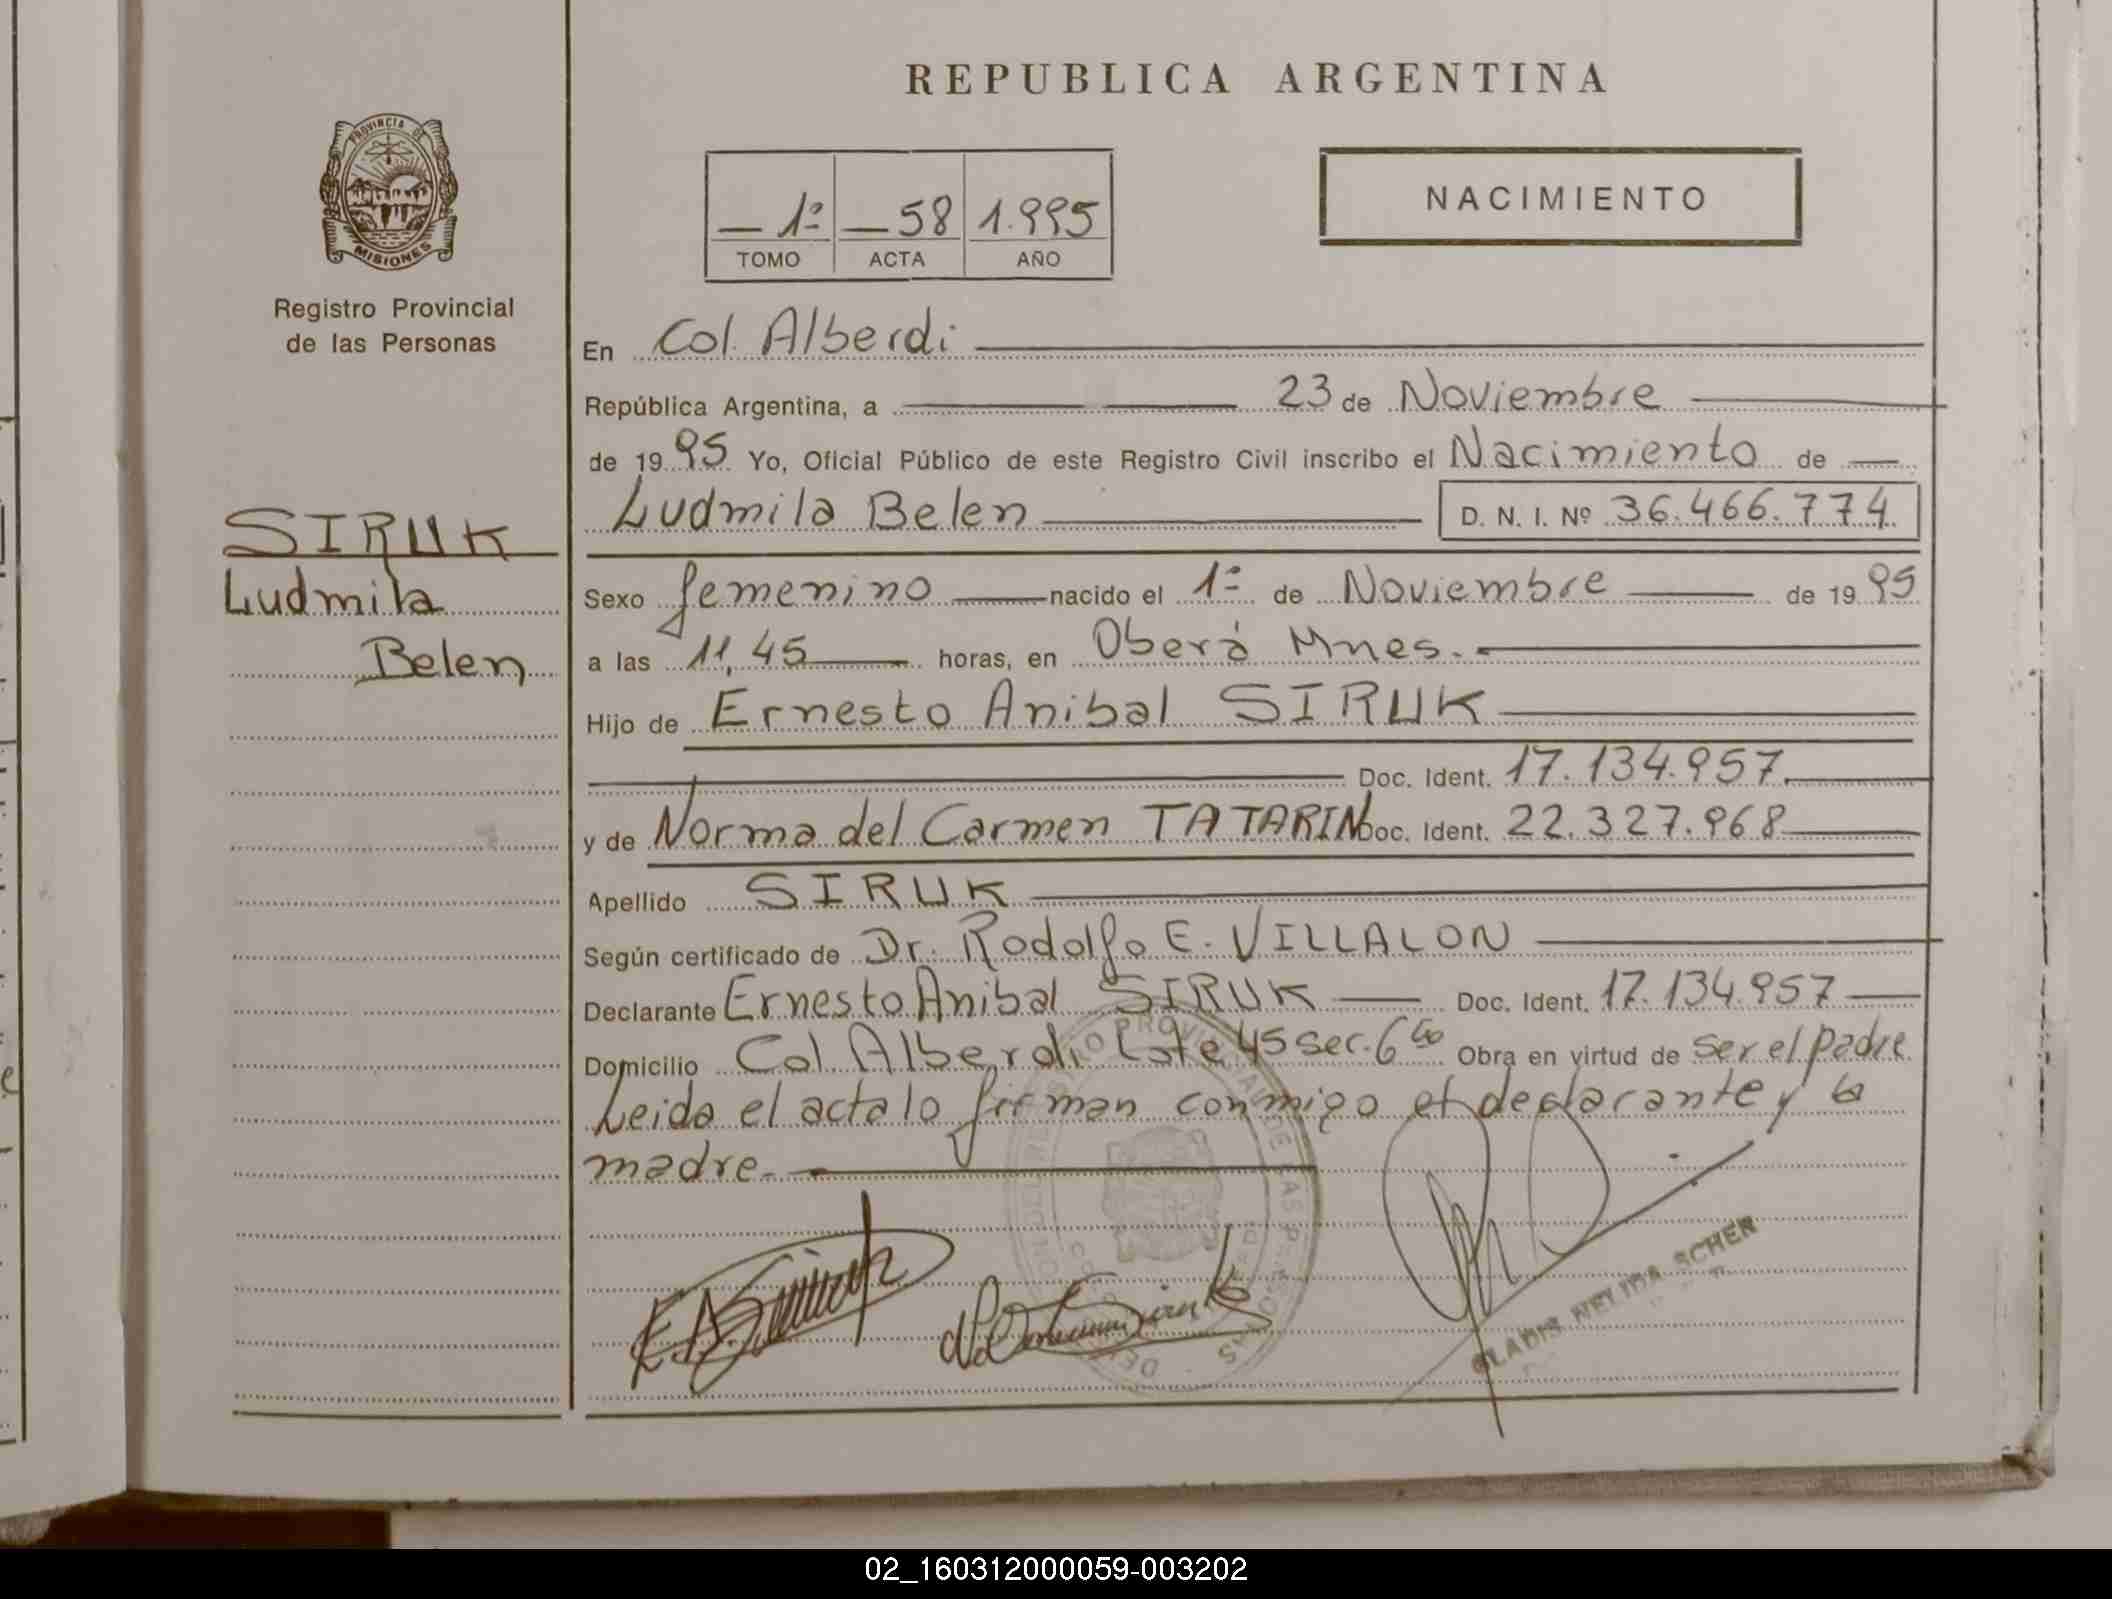 REPUBLICA ARGENTINA
PROVINCIA DE
MISIONES
Registro Provincial
de las Personas
1º 58 1.995
TOMO ACTA AÑO
NACIMIENTO
En Col. Alberdi
República Argentina, a 23 de Noviembre
de 1995 Yo, Oficial Público de este Registro Civil inscribo el Nacimiento de
Ludmila Belen D. N. I. Nº 36.466.774
SIRUK
Ludmila
Belen
Sexo femenino nacido el 1º de Noviembre de 1995
a las 11,45 horas, en Oberá Mnes.
Hijo de Ernesto Anibal SIRUK
Doc. Ident. 17.134.957
y de Norma del Carmen TATARIN Doc. Ident. 22.327.968
Apellido SIRUK
Según certificado de Dr. Rodolfo E. VILLALON
Declarante Ernesto Anibal SIRUK Doc. Ident. 17.134.957
Domicilio Col. Alberdi Lote 45 sec. 6ta Obra en virtud de ser el padre
Leida el acta lo firman conmigo el declarante y la
madre.
GLADIS NELIDA SCHER
02_160312000059-003202